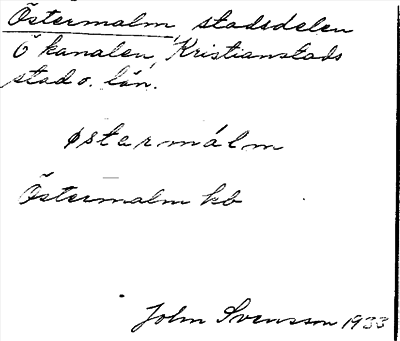 Östermalm, stadsdelen
Ö kanalen, Kristianstads
stad o. län.
østermálm
Östermalm kb
John Svensson 1933